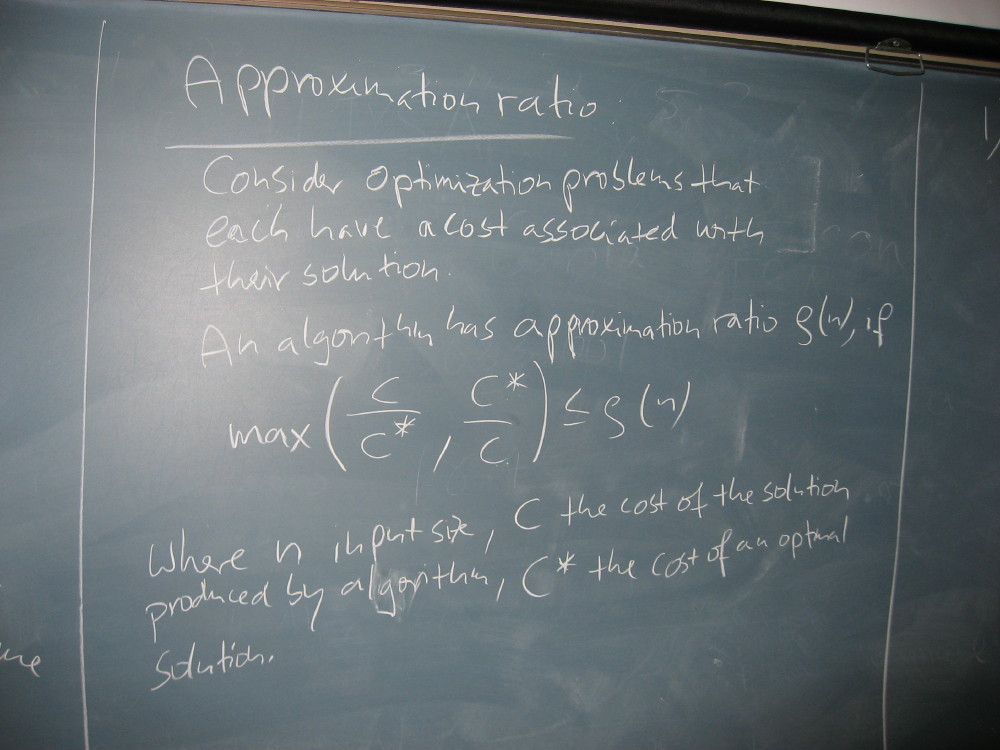 Approximation ratio:
Consider optimization problems that
each have a cost associated with
their solution.
An algorithm has approximation ratio ϱ(n), if
max(C/C*, C*/C) ≤ ϱ(n)
Where n input size, C the cost of the solution
produced by algorithm, C* the cost of an optimal
solution.